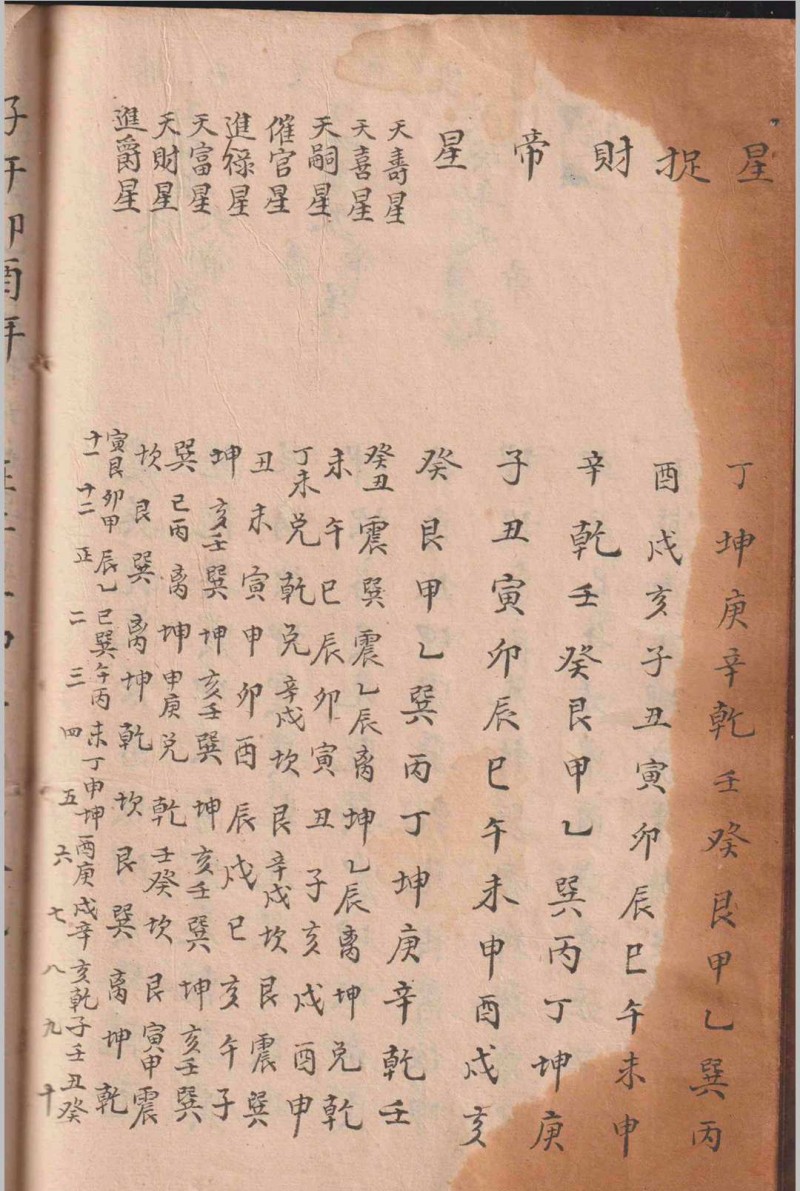 星 丁坤庚辛乾壬癸艮甲乙巽丙
捉 酉戌亥子丑寅卯辰巳午未申
財 辛乾壬癸艮甲乙巽丙丁坤庚
帝 子丑寅卯辰巳午未申酉戌亥
星 癸艮甲乙巽丙丁坤庚辛乾壬
天壽星 癸丑震巽震乙辰离坤乙辰离坤兑乾
天喜星 未午巳辰卯寅丑子亥戌酉申
天嗣星 丁未兑乾兑辛戌坎艮辛戌坎艮震巽
催官星 丑未寅申卯酉辰戌巳亥午子
進禄星 坤亥壬巽坤亥壬巽坤亥壬巽坤亥壬巽
天富星 巽巳丙离坤申庚兑乾壬癸坎艮寅甲震
天財星 坎艮巽离坤乾坎艮巽离坤乾
進爵星 寅艮卯甲辰乙巳巽午丙未丁申坤酉庚戌辛亥乾子壬丑癸
十一 十二 正 二 三 四 五 六 七 八 九 十
子午卯酉年